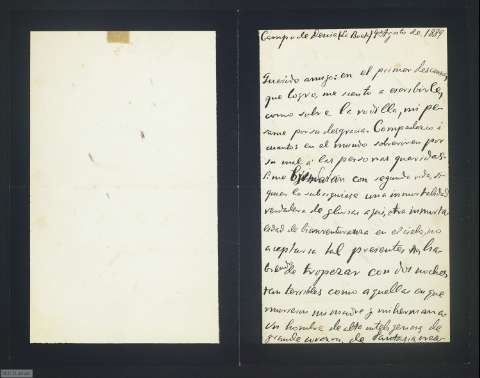 Campo de Denia (La Bach) 9 Agosto de 1889
Querido amigo: en el primer descanso,
que logro, me siento a escribirle,
como sobre la rodilla, mi pe-
same por su desgracia. Compadezco á
cuantos en el mundo sobreviven por
su mal á las personas queridas.
Si me brindaran con segunda vida, si
quier la subsiguiese una inmortalidad
verdadera de glorias aqui, otra inmorta-
lidad de bienaventuranza en el cielo, no
aceptaria tal presente, ha-
biendo tropezar con dos noches
tan terribles como aquellas en que
murieron mi madre y mi hermana.
Un hombre de alta inteligencia, de
grande corazon, de fantasia